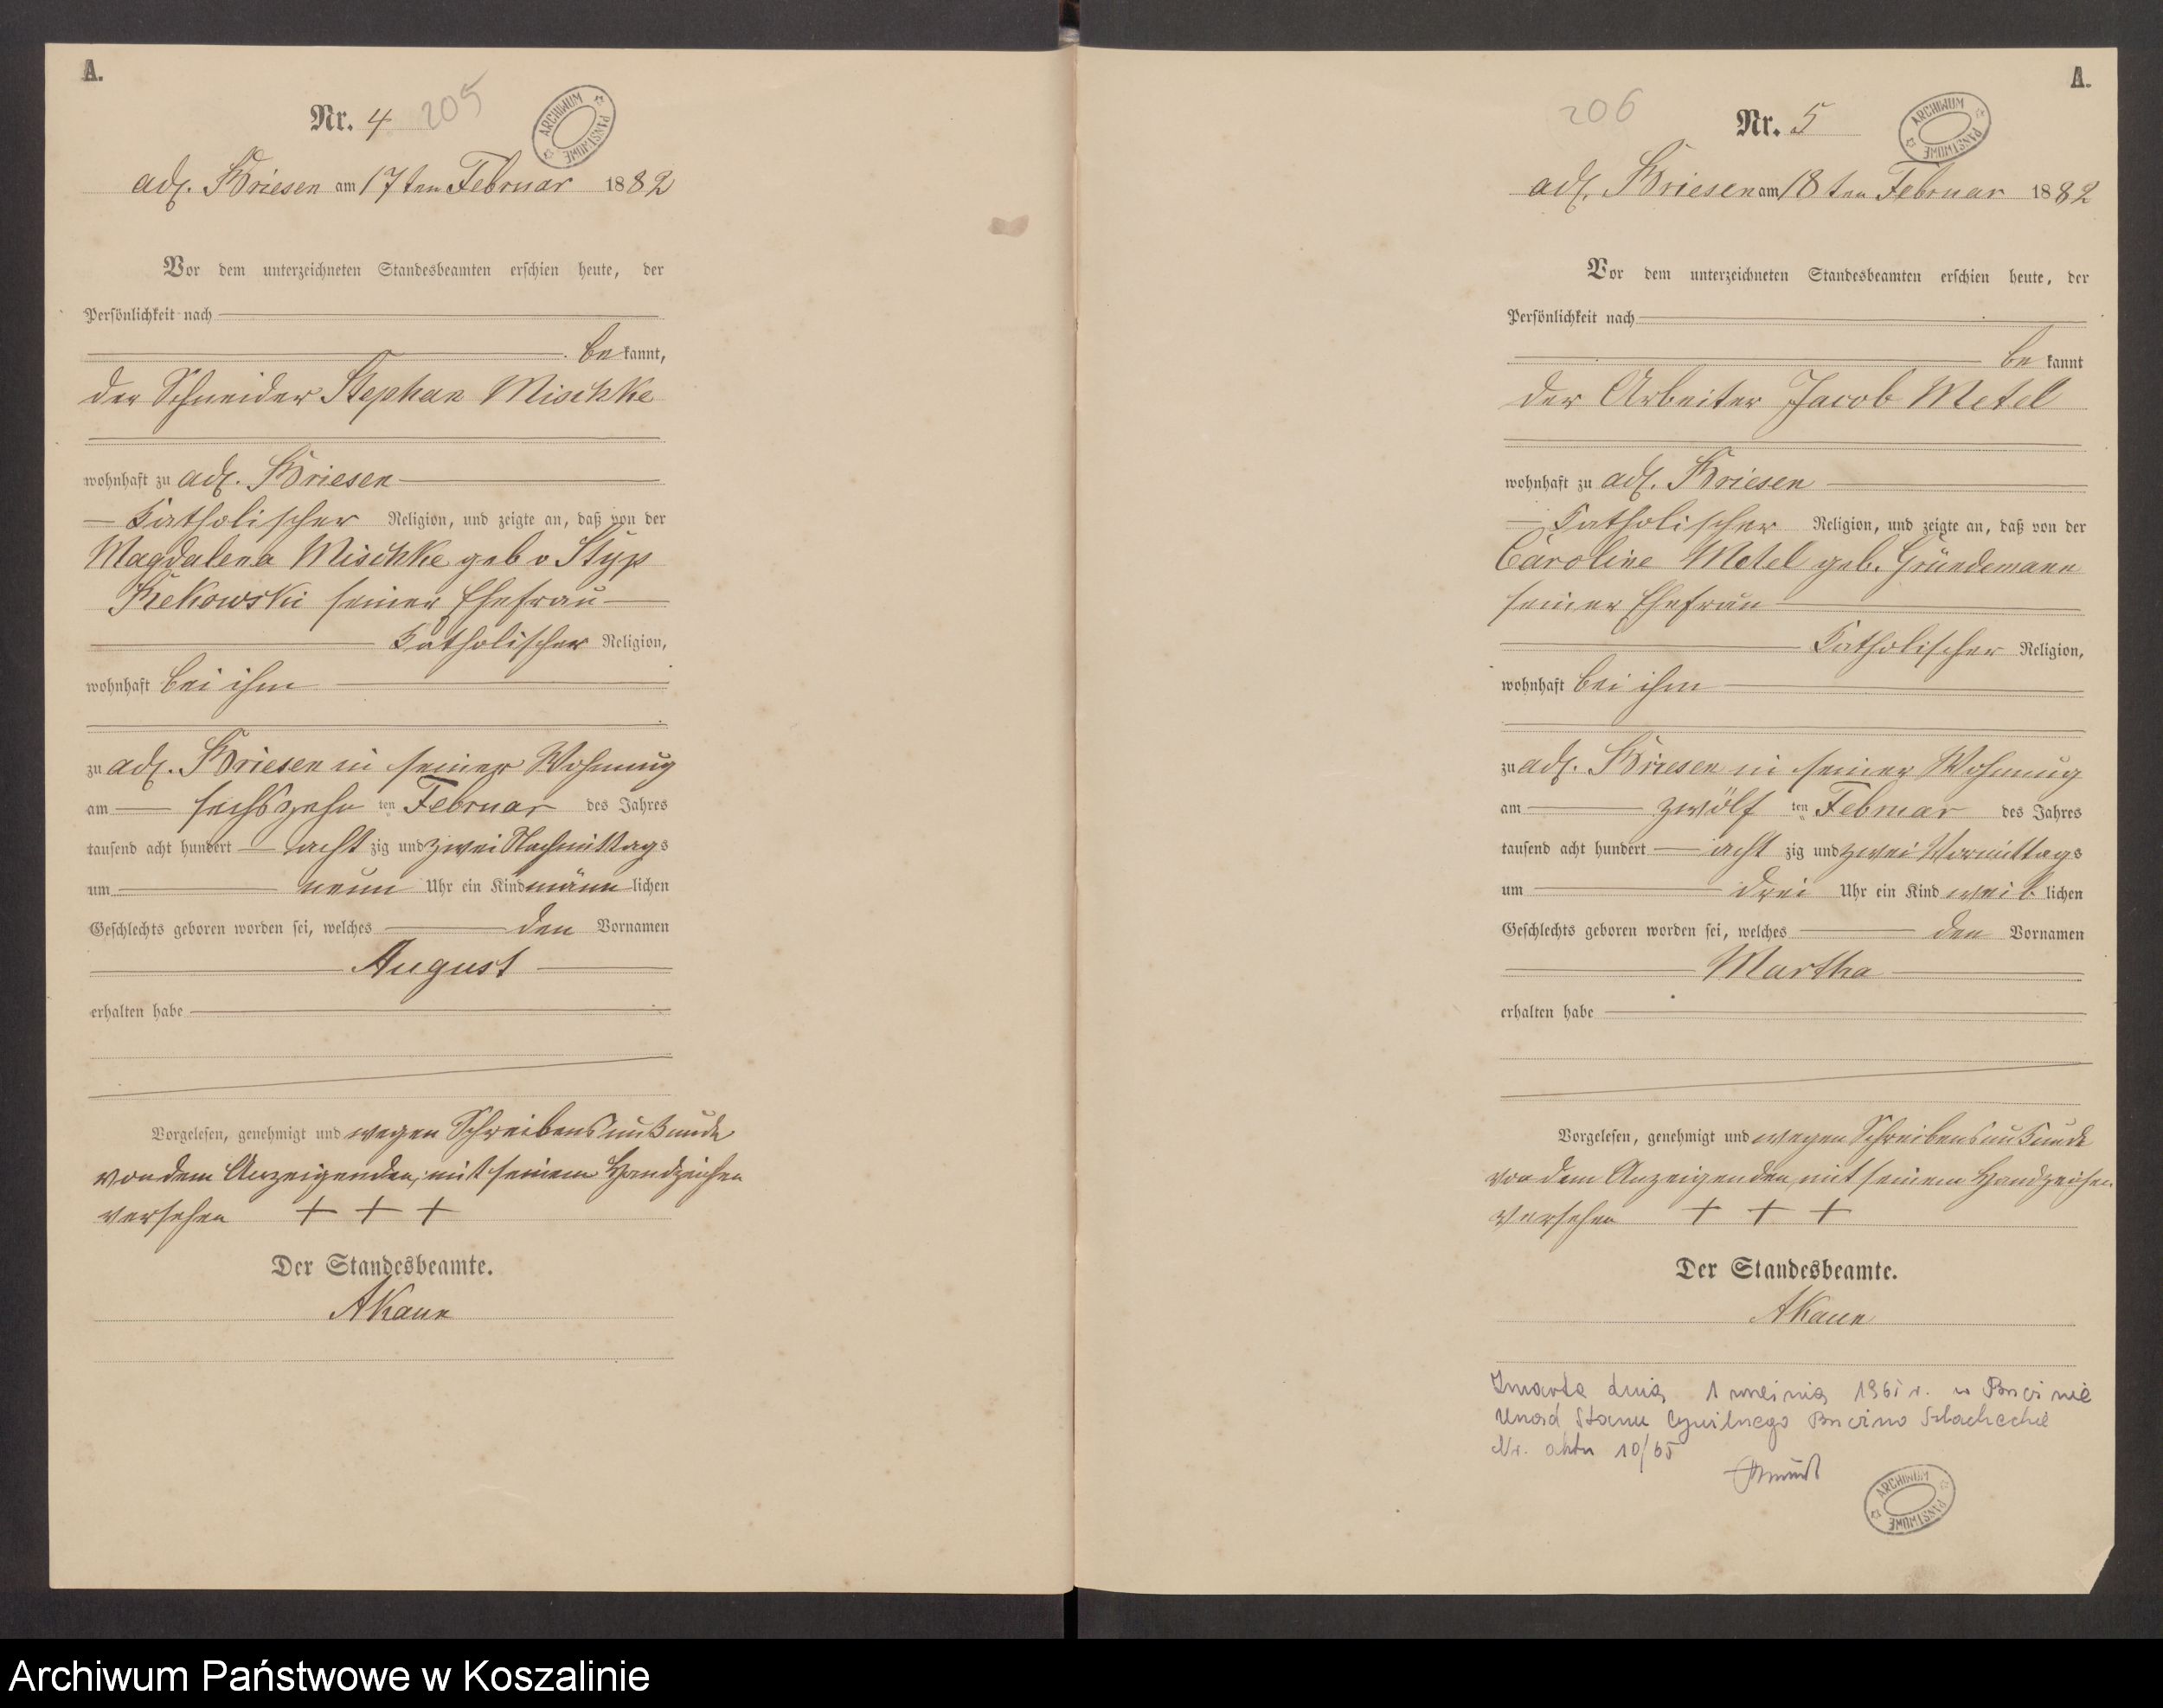 A.
Nr. 4
205
ARCHIWUM PAŃSTWOWE
adl. Briesen am 17ten Februar 1882
Vor dem unterzeichneten Standesbeamten erschien heute, der
Persönlichkeit nach
be kannt,
der Schneider Stephan Mischke
wohnhaft zu adl. Briesen
Katholischer Religion, und zeigte an, daß von der
Magdalena Mischke geb v Styp
Rekowski seiner Ehefrau
Katholischer Religion,
wohnhaft bei ihm
zu adl. Briesen in seiner Wohnung
am sechszehn ten Februar des Jahres
tausend acht hundert acht zig und zwei Nachmittags
um neun Uhr ein Kind männ lichen
Geschlechts geboren worden sei, welches den Vornamen
August
erhalten habe
Vorgelesen, genehmigt und wegen Schreibensunkunde
von dem Anzeigenden, mit seinem Handzeichen
versehen + + +
Der Standesbeamte.
A Kaun
A.
206
Nr. 5
ARCHIWUM PAŃSTWOWE
adl. Briesen am 18ten Februar 1882
Vor dem unterzeichneten Standesbeamten erschien heute, der
Persönlichkeit nach
be kannt
der Arbeiter Jacob Metel
wohnhaft zu adl. Briesen
Katholischer Religion, und zeigte an, daß von der
Caroline Metel geb. Gründemann
seiner Ehefrau
Katholischer Religion,
wohnhaft bei ihm
zu adl. Briesen in seiner Wohnung
am zwölf ten Februar des Jahres
tausend acht hundert acht zig und zwei Vormittags
um drei Uhr ein Kind weib lichen
Geschlechts geboren worden sei, welches den Vornamen
Martha
erhalten habe
Vorgelesen, genehmigt und wegen Schreibensunkunde
von dem Anzeigenden, mit seinem Handzeichen
versehen + + +
Der Standesbeamte.
A Kaun
Zmarła dnia 1 września 1965 r. w
Urząd Stanu Cywilnego Szlacheckie
Nr. aktu 10/65
ARCHIWUM PAŃSTWOWE
Archiwum Państwowe w Koszalinie